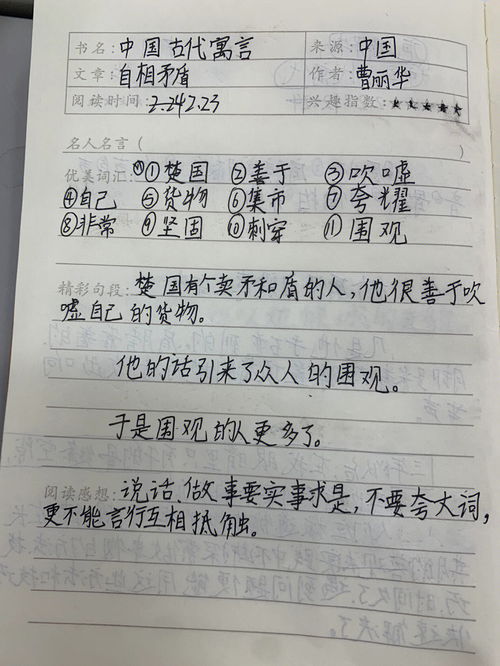 书名：中国古代寓言 来源：中国
文章：自相矛盾 作者：曹丽华
阅读时间：2.24 2.23 兴趣指数：★★★★★
名人名言（
优美词汇：①楚国 ②善于 ③吹嘘
④自己 ⑤货物 ⑥集市 ⑦夸耀
⑧非常 ⑨坚固 ⑩刺穿 ⑪围观
精彩句段：楚国有个卖矛和盾的人，他很善于吹
嘘自己的货物。
他的话引来了众人的围观。
于是围观的人更多了。
阅读感想：说话、做事要实事求是，不要夸大词，
更不能言行互相抵触。